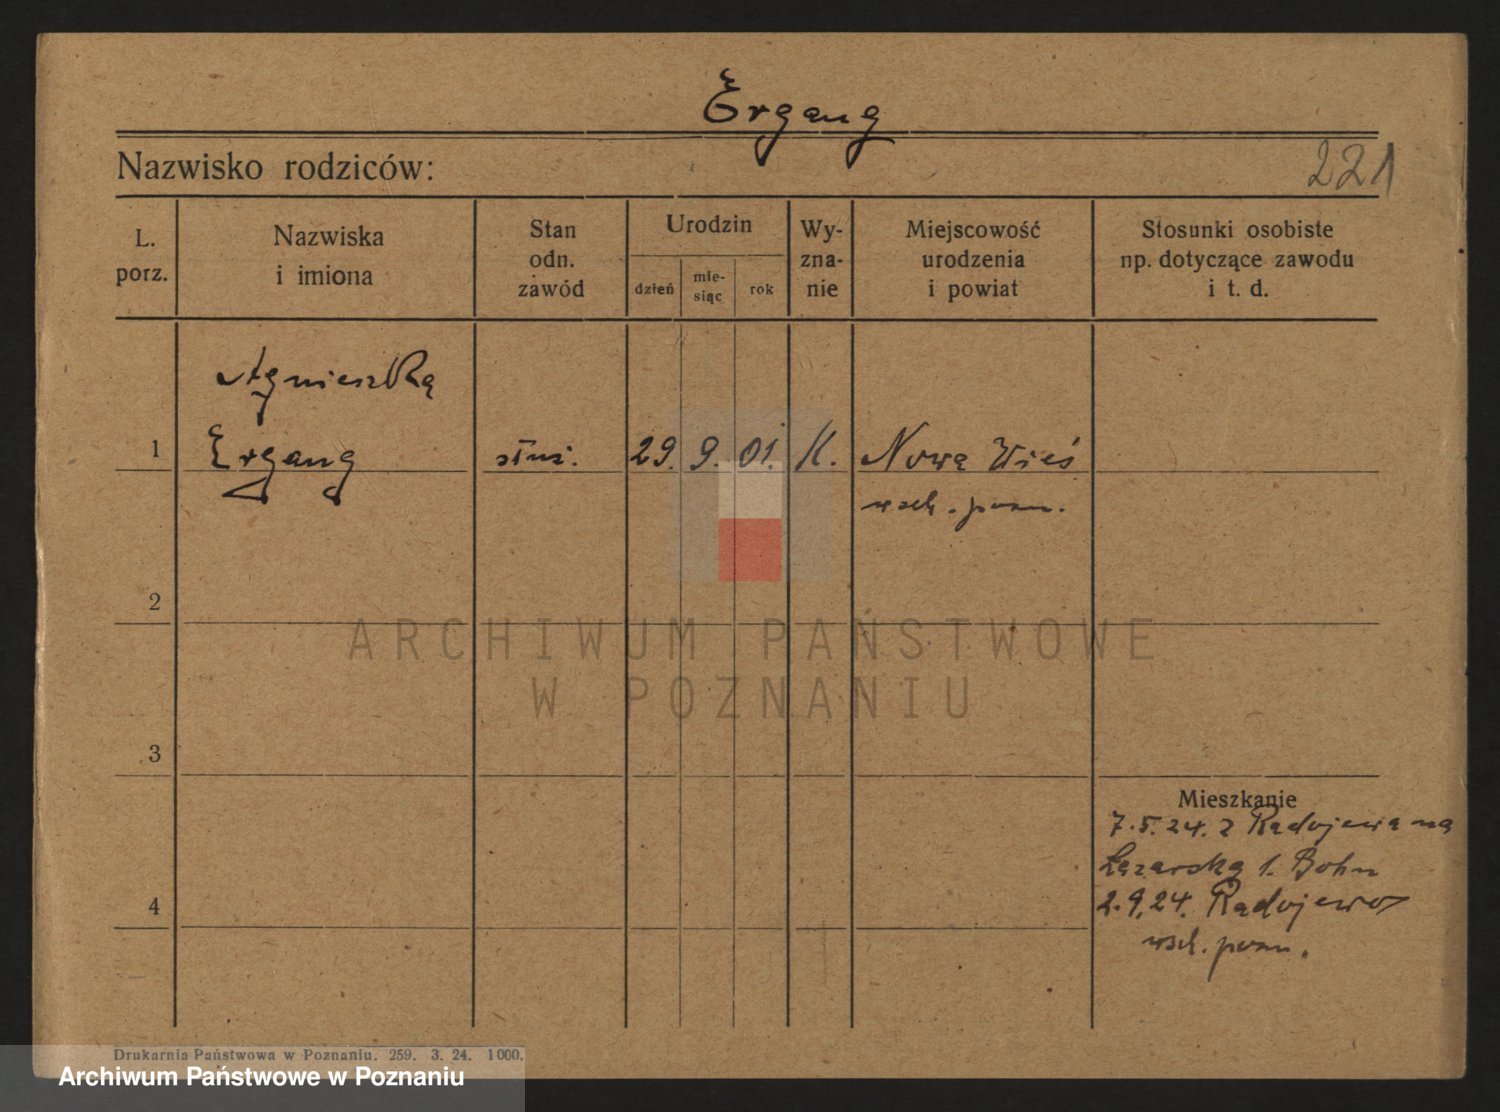 Ergang
Nazwisko rodziców:
221
L.
porz.
Nazwiska
i imiona
Stan
odn.
zawód
Urodzin
dzień
mie-
siąc
rok
Wy-
zna-
nie
Miejscowość
urodzenia
i powiat
Stosunki osobiste
np. dotyczące zawodu
i t. d.
Agnieszka
1 Ergang służ. 29. 9. 01. K. Nowa Wieś
wsch. pozn.
2
ARCHIWUM PAŃSTWOWE
W POZNANIU
3
Mieszkanie
7.5.24. z Radojewa na
Łazarska 1. Bohn
4 2.9.24. Radojewo
wsch. pozn.
Drukarnia Państwowa w Poznaniu. 259. 3. 24. 1000.
Archiwum Państwowe w Poznaniu